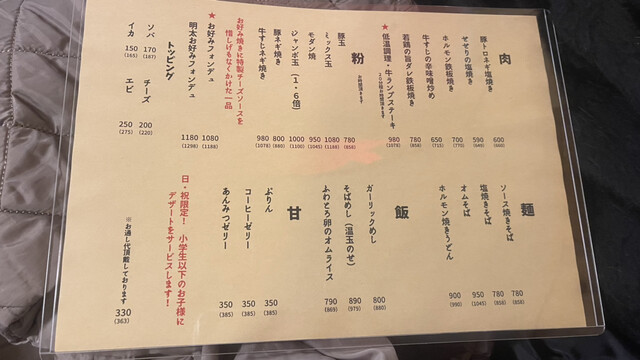 肉
豚トロネギ塩焼き 600 (660)
せせりの塩焼き 590 (649)
ホルモン鉄板焼き 700 (770)
牛すじの辛味噌炒め 650 (715)
若鶏の旨ダレ鉄板焼き 780 (858)
★低温調理・牛ランプステーキ 980 (1078)
粉
豚玉 780 (858)
ミックス玉 1080 (1188)
モダン焼 950 (1045)
ジャンボ玉（1・6倍） 1000 (1100)
豚ネギ焼き 800 (880)
牛すじネギ焼き 980 (1078)
お好み焼きに特製チーズソースを
惜しげもなくかけた一品
★お好みフォンデュ 1080 (1188)
明太お好みフォンデュ 1180 (1298)
トッピング
ソバ 170 (187) チーズ 200 (220)
イカ 150 (165) エビ 250 (275)
麺
ソース焼きそば 780 (858)
塩焼きそば 780 (858)
オムそば 950 (1045)
ホルモン焼きうどん 900 (990)
飯
ガーリックめし 800 (880)
そばめし（温玉のせ） 890 (979)
ふわとろ卵のオムライス 790 (869)
甘
ぷりん 350 (385)
コーヒーゼリー 350 (385)
あんみつゼリー 350 (385)
日・祝限定！ 小学生以下のお子様に
デザートをサービスします！
※お通し代頂戴しております 330 (363)